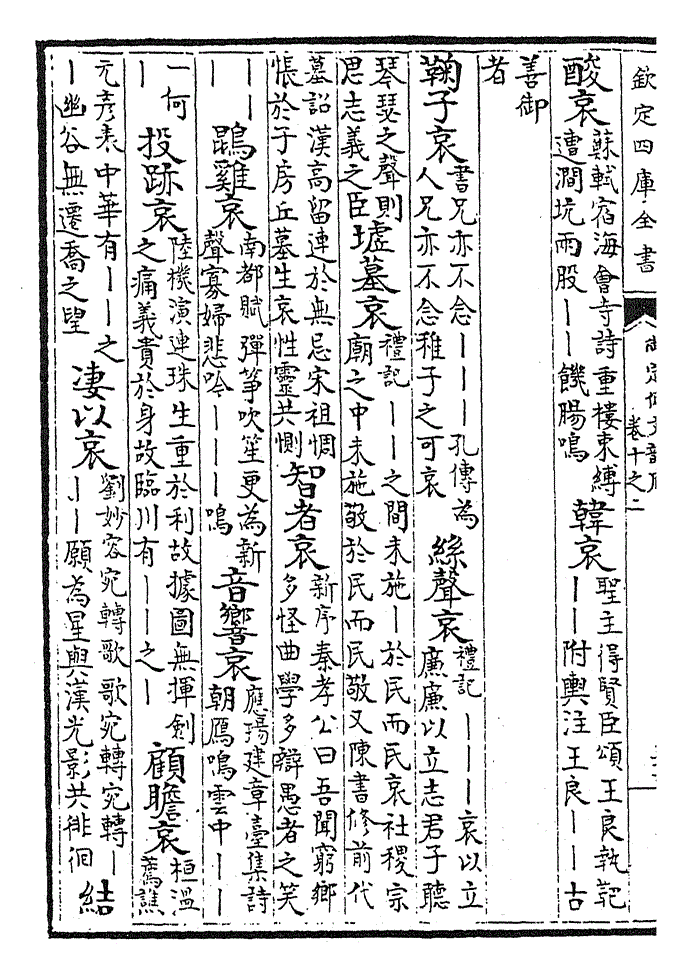 欽定四庫全書
卷十之二
酸哀
蘇軾宿海會寺詩重樓束縛
遭澗坑兩股丨丨饑腸鳴
韓哀
聖主得賢臣頌王良執靶
丨丨附輿注王良丨丨古
善御
者
鞠子哀
書兄亦不念丨丨丨孔傳為
人兄亦不念稚子之可哀
絲聲哀
禮記丨丨丨哀以立
廉廉以立志君子聽
琴瑟之聲則
思志義之臣
墟墓哀
禮記丨丨之間未施丨於民而民哀社稷宗
廟之中未施敬於民而民敬又陳書修前代
墓詔漢高留連於無忌宋祖惆
悵於子房丘墓生哀性靈共惻
智者哀
新序秦孝公曰吾聞窮鄉
多怪曲學多辯愚者之笑
丨丨
丨丨
鵾雞哀
南都賦彈箏吹笙更為新
聲寡婦悲吟丨丨丨鳴
音響哀
應瑒建章臺集詩
朝鴈鳴雲中丨丨
一何
丨
投跡哀
陸機演連珠生重於利故據圖無揮劍
之痛義貴於身故臨川有丨丨之丨
顧瞻哀
桓温
薦譙
元彥表中華有丨丨之
丨幽谷無遷喬之望
凄以哀
劉妙容宛轉歌歌宛轉宛轉丨
丨丨願為星與漢光影共徘徊
結